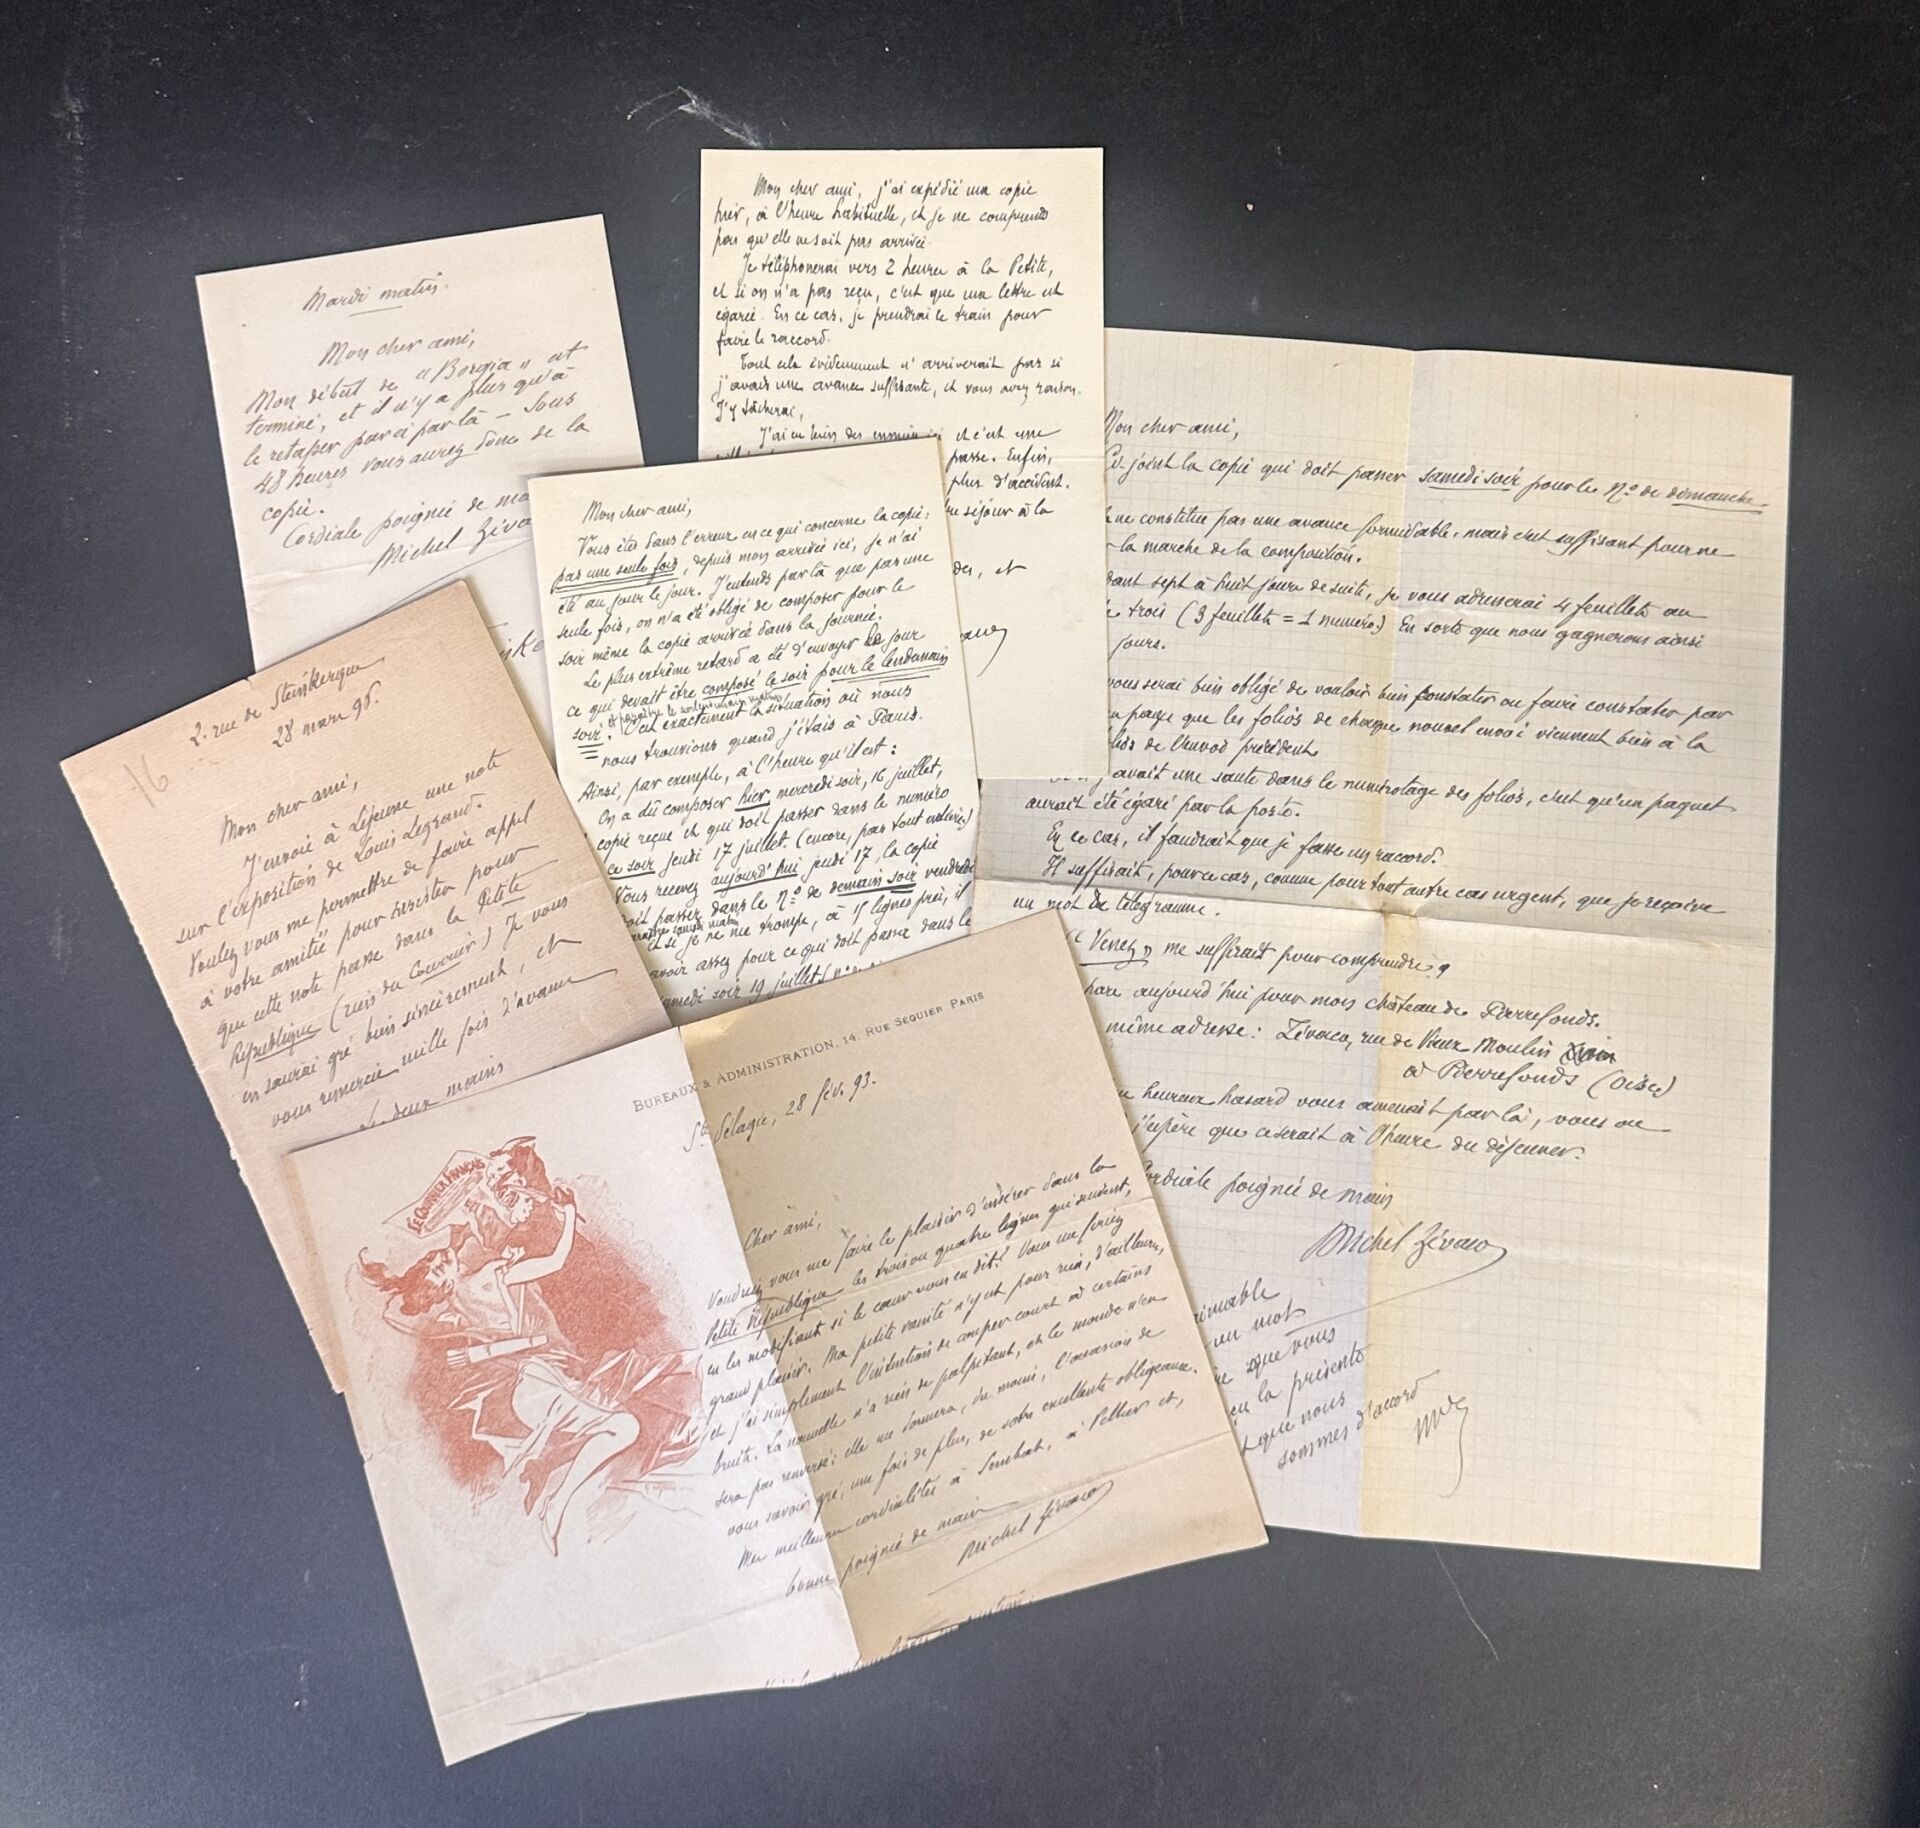 Mardi matin.
Mon cher ami,
Mon début de "Borgia" est
terminé, et il n'y a plus qu'à
le retaper par ci par là – Sous
48 heures vous aurez donc de la
copie.
Cordiale poignée de
Michel Zévaco
Mon cher ami, j'ai expédié ma copie
hier, à l'heure habituelle, et je ne comprends
pas qu'elle ne soit pas arrivée.
Je téléphonerai vers 2 heures à la Petite,
et si on n'a pas reçu, c'est que ma lettre est
égarée. En ce cas, je prendrai le train pour
faire le raccord.
Tout cela évidemment n'arriverait pas si
j'avais une avance suffisante, et vous avez raison.
J'y tâcherai,
J'ai eu bien des et c'est une
passe. Enfin,
plus d'accident.
séjour à la
et
Mon cher ami,
Vous êtes dans l'erreur en ce qui concerne la copie:
pas une seule fois, depuis mon arrivée ici, je n'ai
été au jour le jour. J'entends par là que pas une
seule fois, on n'a été obligé de composer pour le
soir même la copie arrivée dans la journée.
Le plus extrême retard a été d'envoyer le jour
ce qui devait être composé le soir pour le lendemain
soir. C'est exactement la situation où nous
nous trouvions quand j'étais à Paris.
Ainsi, par exemple, à l'heure qu'il est:
On a dû composer hier mercredi soir, 16 juillet,
copie reçue et qui doit passer dans le numéro
ce soir jeudi 17 juillet. (encore, pas tout entière)
Vous recevez aujourd'hui jeudi 17, la copie
doit passer dans le No de demain soir vendredi
et si je ne me trompe, à 15 lignes près, il
avoir assez pour ce qui doit passer dans le
samedi soir 19 juillet
Mon cher ami,
Ci-joint la copie qui doit passer samedi soir pour le No de dimanche.
ne constitue pas une avance formidable, mais c'est suffisant pour ne
la marche de la composition.
sept à huit jours de suite, je vous adresserai 4 feuillets au
trois (3 feuillets = 1 numéro) En sorte que nous gagnerons ainsi
jours.
vous serai bien obligé de vouloir bien constater ou faire constater par
page que les folios de chaque nouvel envoi viennent bien à la
de l'envoi précédent.
avait une saute dans le numérotage des folios, c'est qu'un paquet
aurait été égaré par la poste.
En ce cas, il faudrait que je fasse un raccord.
Il suffirait, pour ce cas, comme pour tout autre cas urgent, que je reçoive
un mot de télégramme.
"Venez" me suffirait pour comprendre.
aujourd'hui pour mon château de Pierrefonds.
même adresse: Zévaco, rue de Vieux Moulin
à Pierrefonds (Oise)
heureux hasard vous amenait par là, vous ou
j'espère que ce serait à l'heure du déjeuner.
Cordiale poignée de main
Michel Zévaco
aimable
un mot
que vous
la présente
que nous
sommes d'accord
MZ
16
2. rue de Steinkerque
28 mars 96.
Mon cher ami,
J'envoie à Lejeune une note
sur l'exposition de Louis Legrand.
Voulez vous me permettre de faire appel
à votre amitié pour insister pour
que cette note passe dans la Petite
République (rien du Courrier) Je vous
en saurai gré bien sincèrement, et
vous remercie mille fois d'avance
deux mains
LE COURRIER FRANÇAIS
BUREAUX & ADMINISTRATION, 14, RUE SÉGUIER PARIS
Ste Pélagie, 28 fév. 93.
Cher ami,
Voudriez vous me faire le plaisir d'insérer dans la
Petite République les trois ou quatre lignes qui suivent,
en les modifiant si le cœur vous en dit? Vous me feriez
grand plaisir. Ma petite vanité n'y est pour rien, d'ailleurs,
et j'ai simplement l'intention de couper court à certains
bruits. La nouvelle n'a rien de palpitant, et le monde n'en
sera pas renversé: elle me donnera, du moins, l'occasion de
vous savoir gré, une fois de plus, de votre excellente obligeance.
Mes meilleures cordialités à Sembat, à Pellier et,
bonne poignée de main
Michel Zévaco